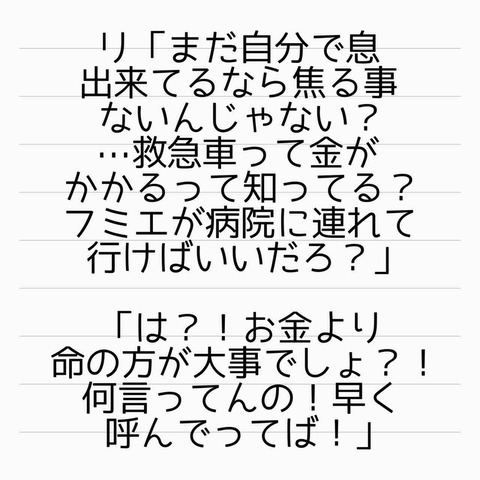 リ「まだ自分で息
出来てるなら焦る事
ないんじゃない?
…救急車って金が
かかるって知ってる?
フミエが病院に連れて
行けばいいだろ?」
「は?!お金より
命の方が大事でしょ?!
何言ってんの!早く
呼んでってば!」